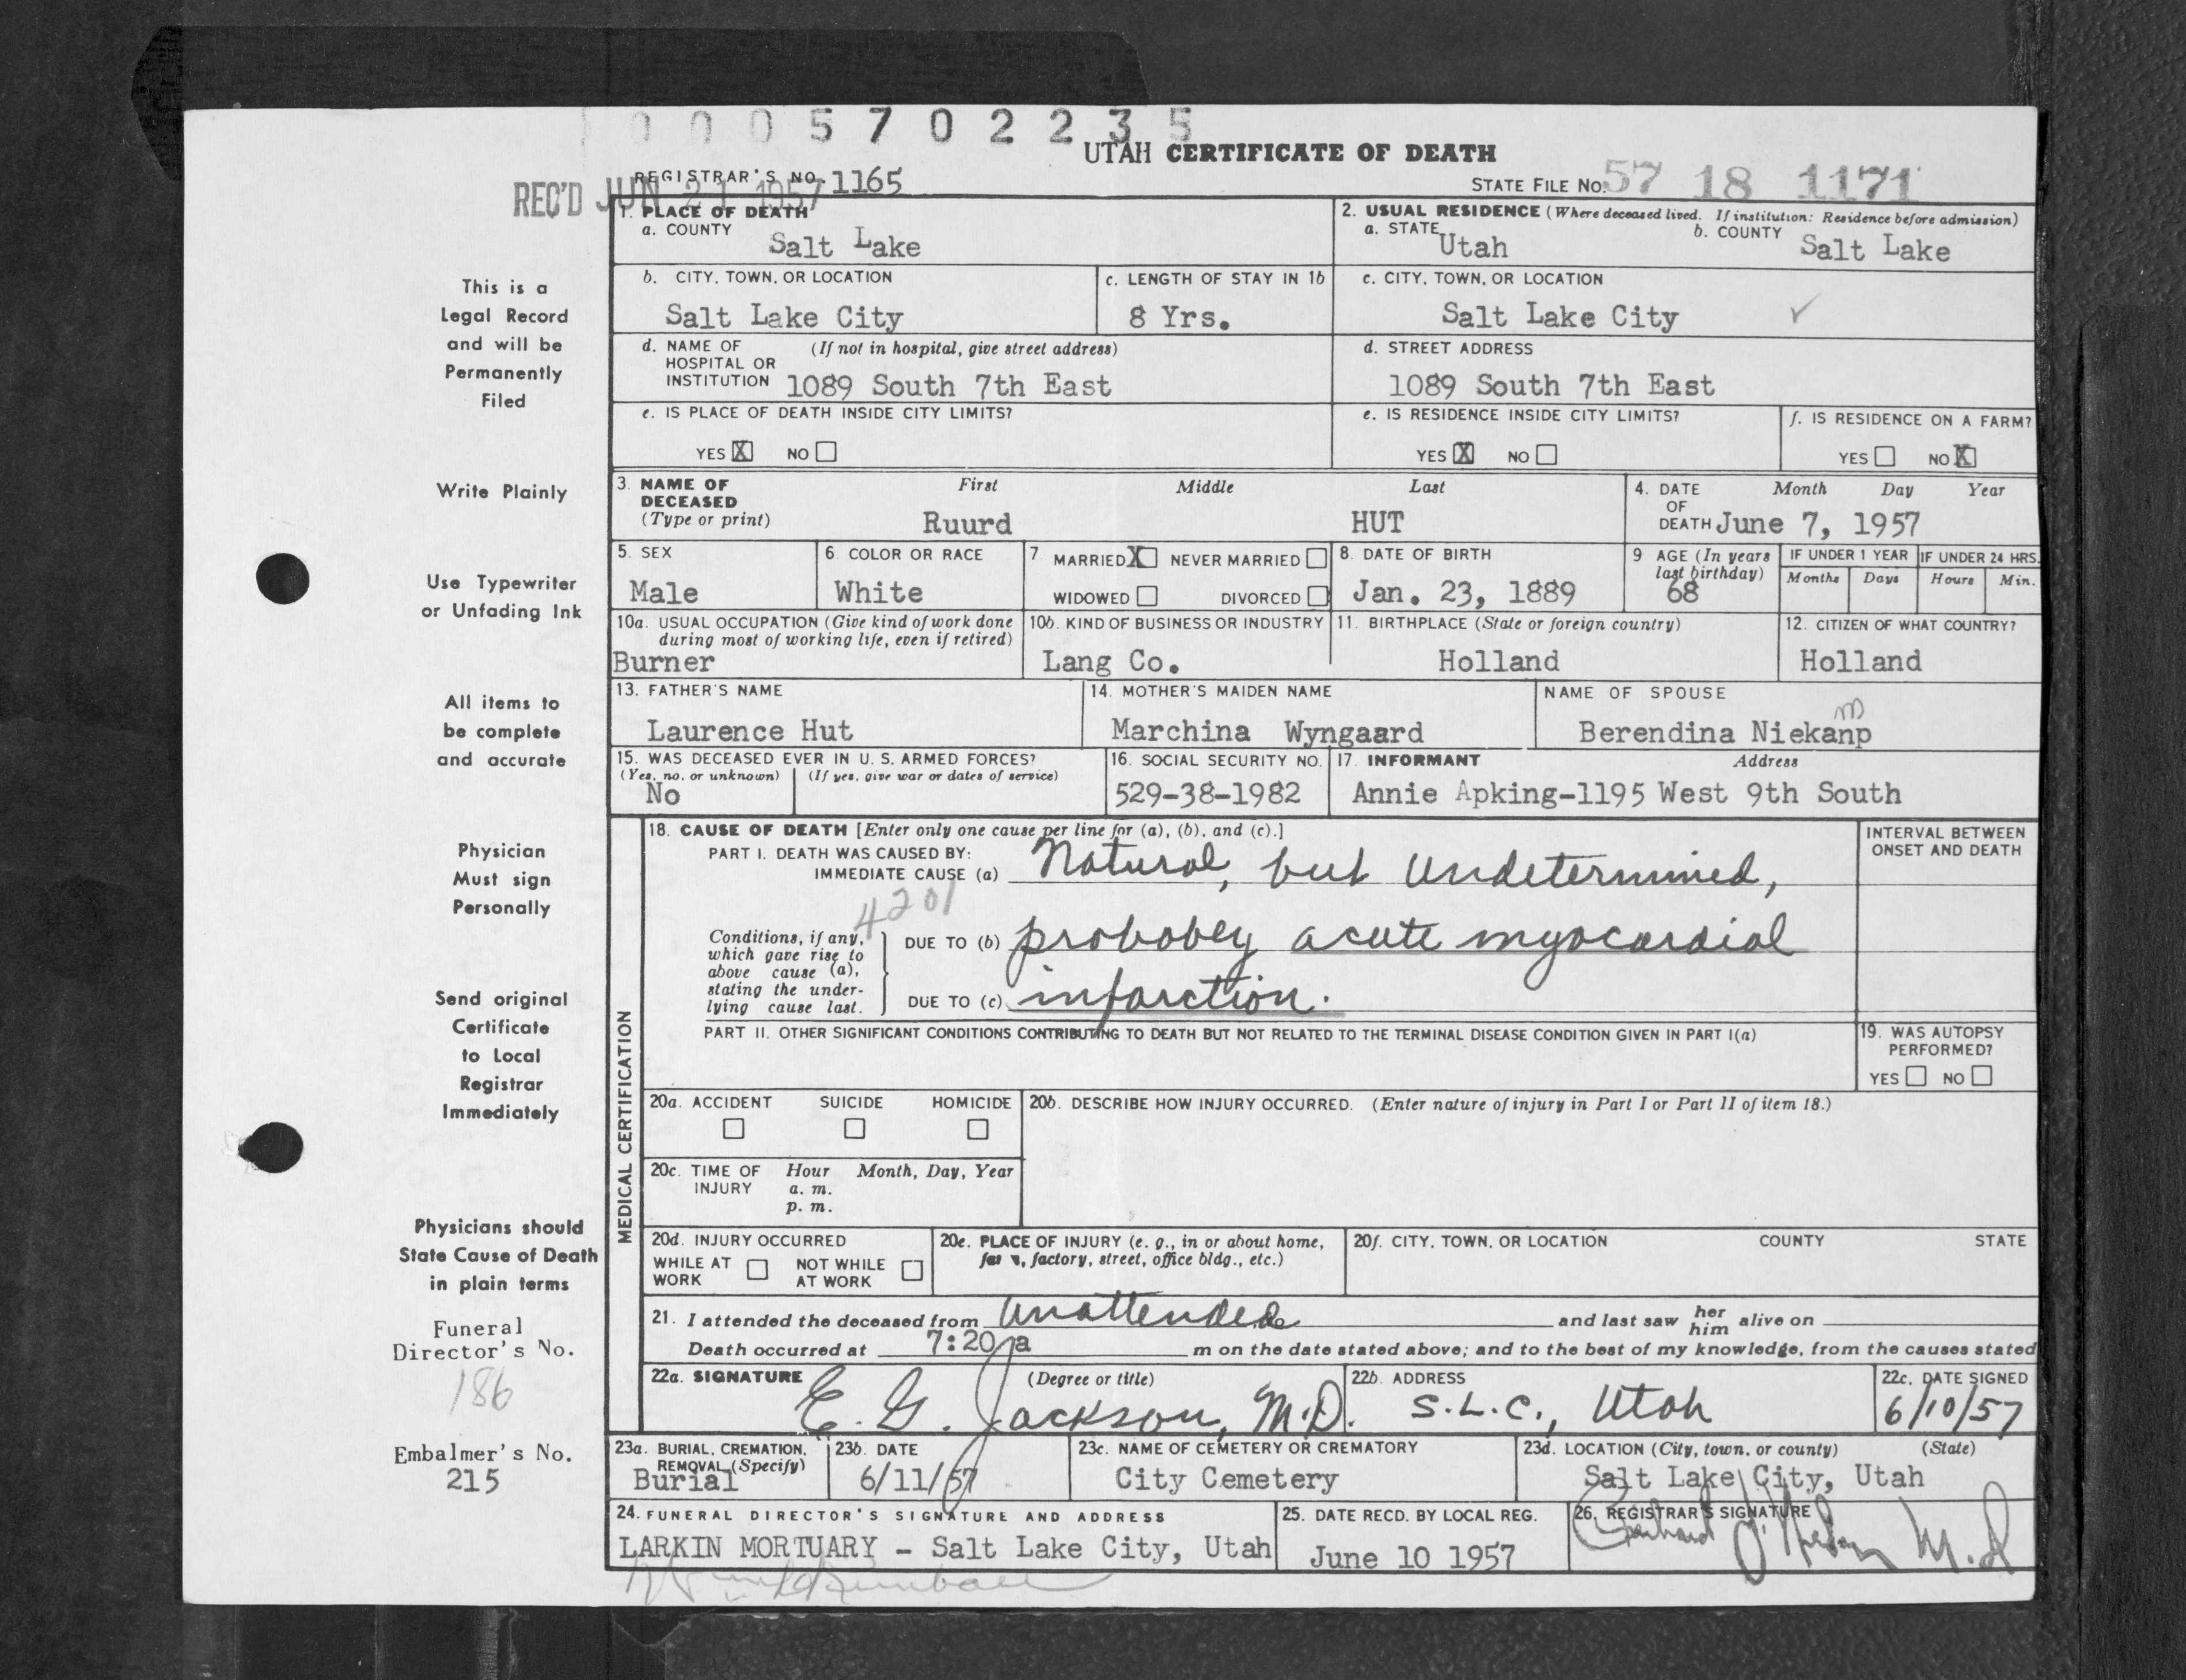 0 0 0 5 7 0 2 2 3 5
UTAH CERTIFICATE OF DEATH
REC'D JUN 21 1957
REGISTRAR'S NO. 1165
STATE FILE NO. 57 18 1171
1. PLACE OF DEATH
a. COUNTY Salt Lake
2. USUAL RESIDENCE (Where deceased lived. If institution: Residence before admission)
a. STATE Utah b. COUNTY Salt Lake
b. CITY, TOWN, OR LOCATION
Salt Lake City
c. LENGTH OF STAY IN 1b
8 Yrs.
c. CITY, TOWN, OR LOCATION
Salt Lake City ✓
d. NAME OF HOSPITAL OR INSTITUTION (If not in hospital, give street address)
1089 South 7th East
d. STREET ADDRESS
1089 South 7th East
e. IS PLACE OF DEATH INSIDE CITY LIMITS?
YES X NO
e. IS RESIDENCE INSIDE CITY LIMITS?
YES X NO
f. IS RESIDENCE ON A FARM?
YES NO X
3. NAME OF DECEASED (Type or print)
First Middle Last
Ruurd HUT
4. DATE OF DEATH Month Day Year
June 7, 1957
5. SEX
Male
6. COLOR OR RACE
White
7 MARRIED X NEVER MARRIED
WIDOWED DIVORCED
8. DATE OF BIRTH
Jan. 23, 1889
9 AGE (In years last birthday)
68
IF UNDER 1 YEAR
Months Days
IF UNDER 24 HRS.
Hours Min.
10a. USUAL OCCUPATION (Give kind of work done during most of working life, even if retired)
Burner
10b. KIND OF BUSINESS OR INDUSTRY
Lang Co.
11. BIRTHPLACE (State or foreign country)
Holland
12. CITIZEN OF WHAT COUNTRY?
Holland
13. FATHER'S NAME
Laurence Hut
14. MOTHER'S MAIDEN NAME
Marchina Wyngaard
NAME OF SPOUSE
m
Berendina Niekanp
15. WAS DECEASED EVER IN U. S. ARMED FORCES?
(Yes, no, or unknown) (If yes, give war or dates of service)
No
16. SOCIAL SECURITY NO.
529-38-1982
17. INFORMANT Address
Annie Apking-1195 West 9th South
MEDICAL CERTIFICATION
18. CAUSE OF DEATH [Enter only one cause per line for (a), (b), and (c).]
PART I. DEATH WAS CAUSED BY:
IMMEDIATE CAUSE (a) Natural, but Undetermined,
4201
Conditions, if any, which gave rise to above cause (a), stating the underlying cause last.
DUE TO (b) probobey acute myocardial
DUE TO (c) infarction.
INTERVAL BETWEEN ONSET AND DEATH
PART II. OTHER SIGNIFICANT CONDITIONS CONTRIBUTING TO DEATH BUT NOT RELATED TO THE TERMINAL DISEASE CONDITION GIVEN IN PART I(a)
19. WAS AUTOPSY PERFORMED?
YES NO
20a. ACCIDENT SUICIDE HOMICIDE
20b. DESCRIBE HOW INJURY OCCURRED. (Enter nature of injury in Part I or Part II of item 18.)
20c. TIME OF INJURY Hour Month, Day, Year
a. m.
p. m.
20d. INJURY OCCURRED
WHILE AT WORK NOT WHILE AT WORK
20e. PLACE OF INJURY (e. g., in or about home, farm, factory, street, office bldg., etc.)
20f. CITY, TOWN, OR LOCATION COUNTY STATE
21. I attended the deceased from Unattended and last saw her him alive on
Death occurred at 7:20 a m on the date stated above; and to the best of my knowledge, from the causes stated
22a. SIGNATURE (Degree or title)
E. G. Jackson, M.D.
22b. ADDRESS
S.L.C., Utah
22c. DATE SIGNED
6/10/57
23a. BURIAL, CREMATION, REMOVAL (Specify)
Burial
23b. DATE
6/11/57
23c. NAME OF CEMETERY OR CREMATORY
City Cemetery
23d. LOCATION (City, town, or county) (State)
Salt Lake City, Utah
24. FUNERAL DIRECTOR'S SIGNATURE AND ADDRESS
LARKIN MORTUARY - Salt Lake City, Utah
25. DATE RECD. BY LOCAL REG.
June 10 1957
26. REGISTRAR'S SIGNATURE
M.D
This is a
Legal Record
and will be
Permanently
Filed
Write Plainly
Use Typewriter
or Unfading Ink
All items to
be complete
and accurate
Physician
Must sign
Personally
Send original
Certificate
to Local
Registrar
Immediately
Physicians should
State Cause of Death
in plain terms
Funeral
Director's No.
186
Embalmer's No.
215